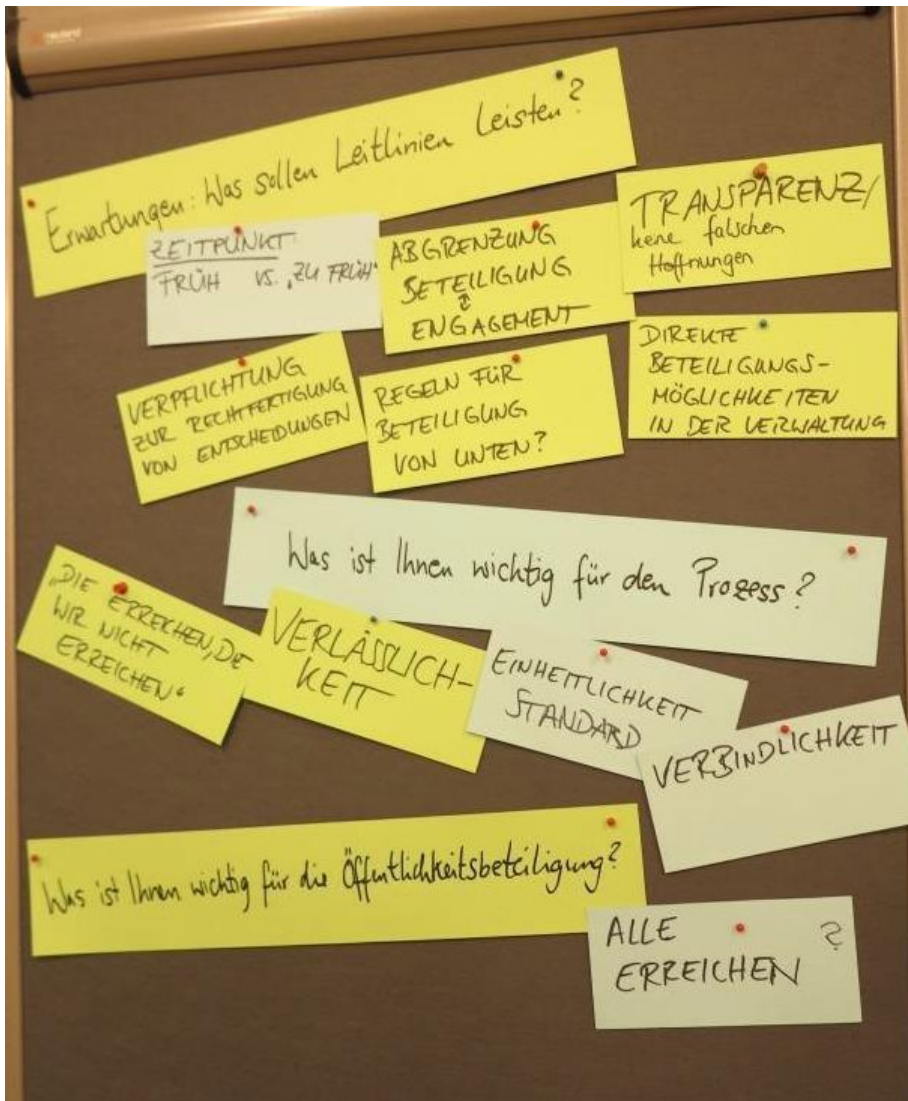 neuland
Erwartungen: Was sollen Leitlinien Leisten?
ZEITPUNKT:
FRÜH vs. „ZU FRÜH"
ABGRENZUNG
BETEILIGUNG
↕
ENGAGEMENT
TRANSPARENZ/
keine falschen
Hoffnungen
VERPFLICHTUNG
ZUR RECHTFERTIGUNG
VON ENTSCHEIDUNGEN
REGELN FÜR
BETEILIGUNG
VON UNTEN?
DIREKTE
BETEILIGUNGS-
MÖGLICHKEITEN
IN DER VERWALTUNG
Was ist Ihnen wichtig für den Prozess?
„DIE ERREICHEN, DIE
WIR NICHT
ERREICHEN"
VERLÄSSLICH-
KEIT
EINHEITLICHKEIT
STANDARD
VERBINDLICHKEIT
Was ist Ihnen wichtig für die Öffentlichkeitsbeteiligung?
ALLE ?
ERREICHEN